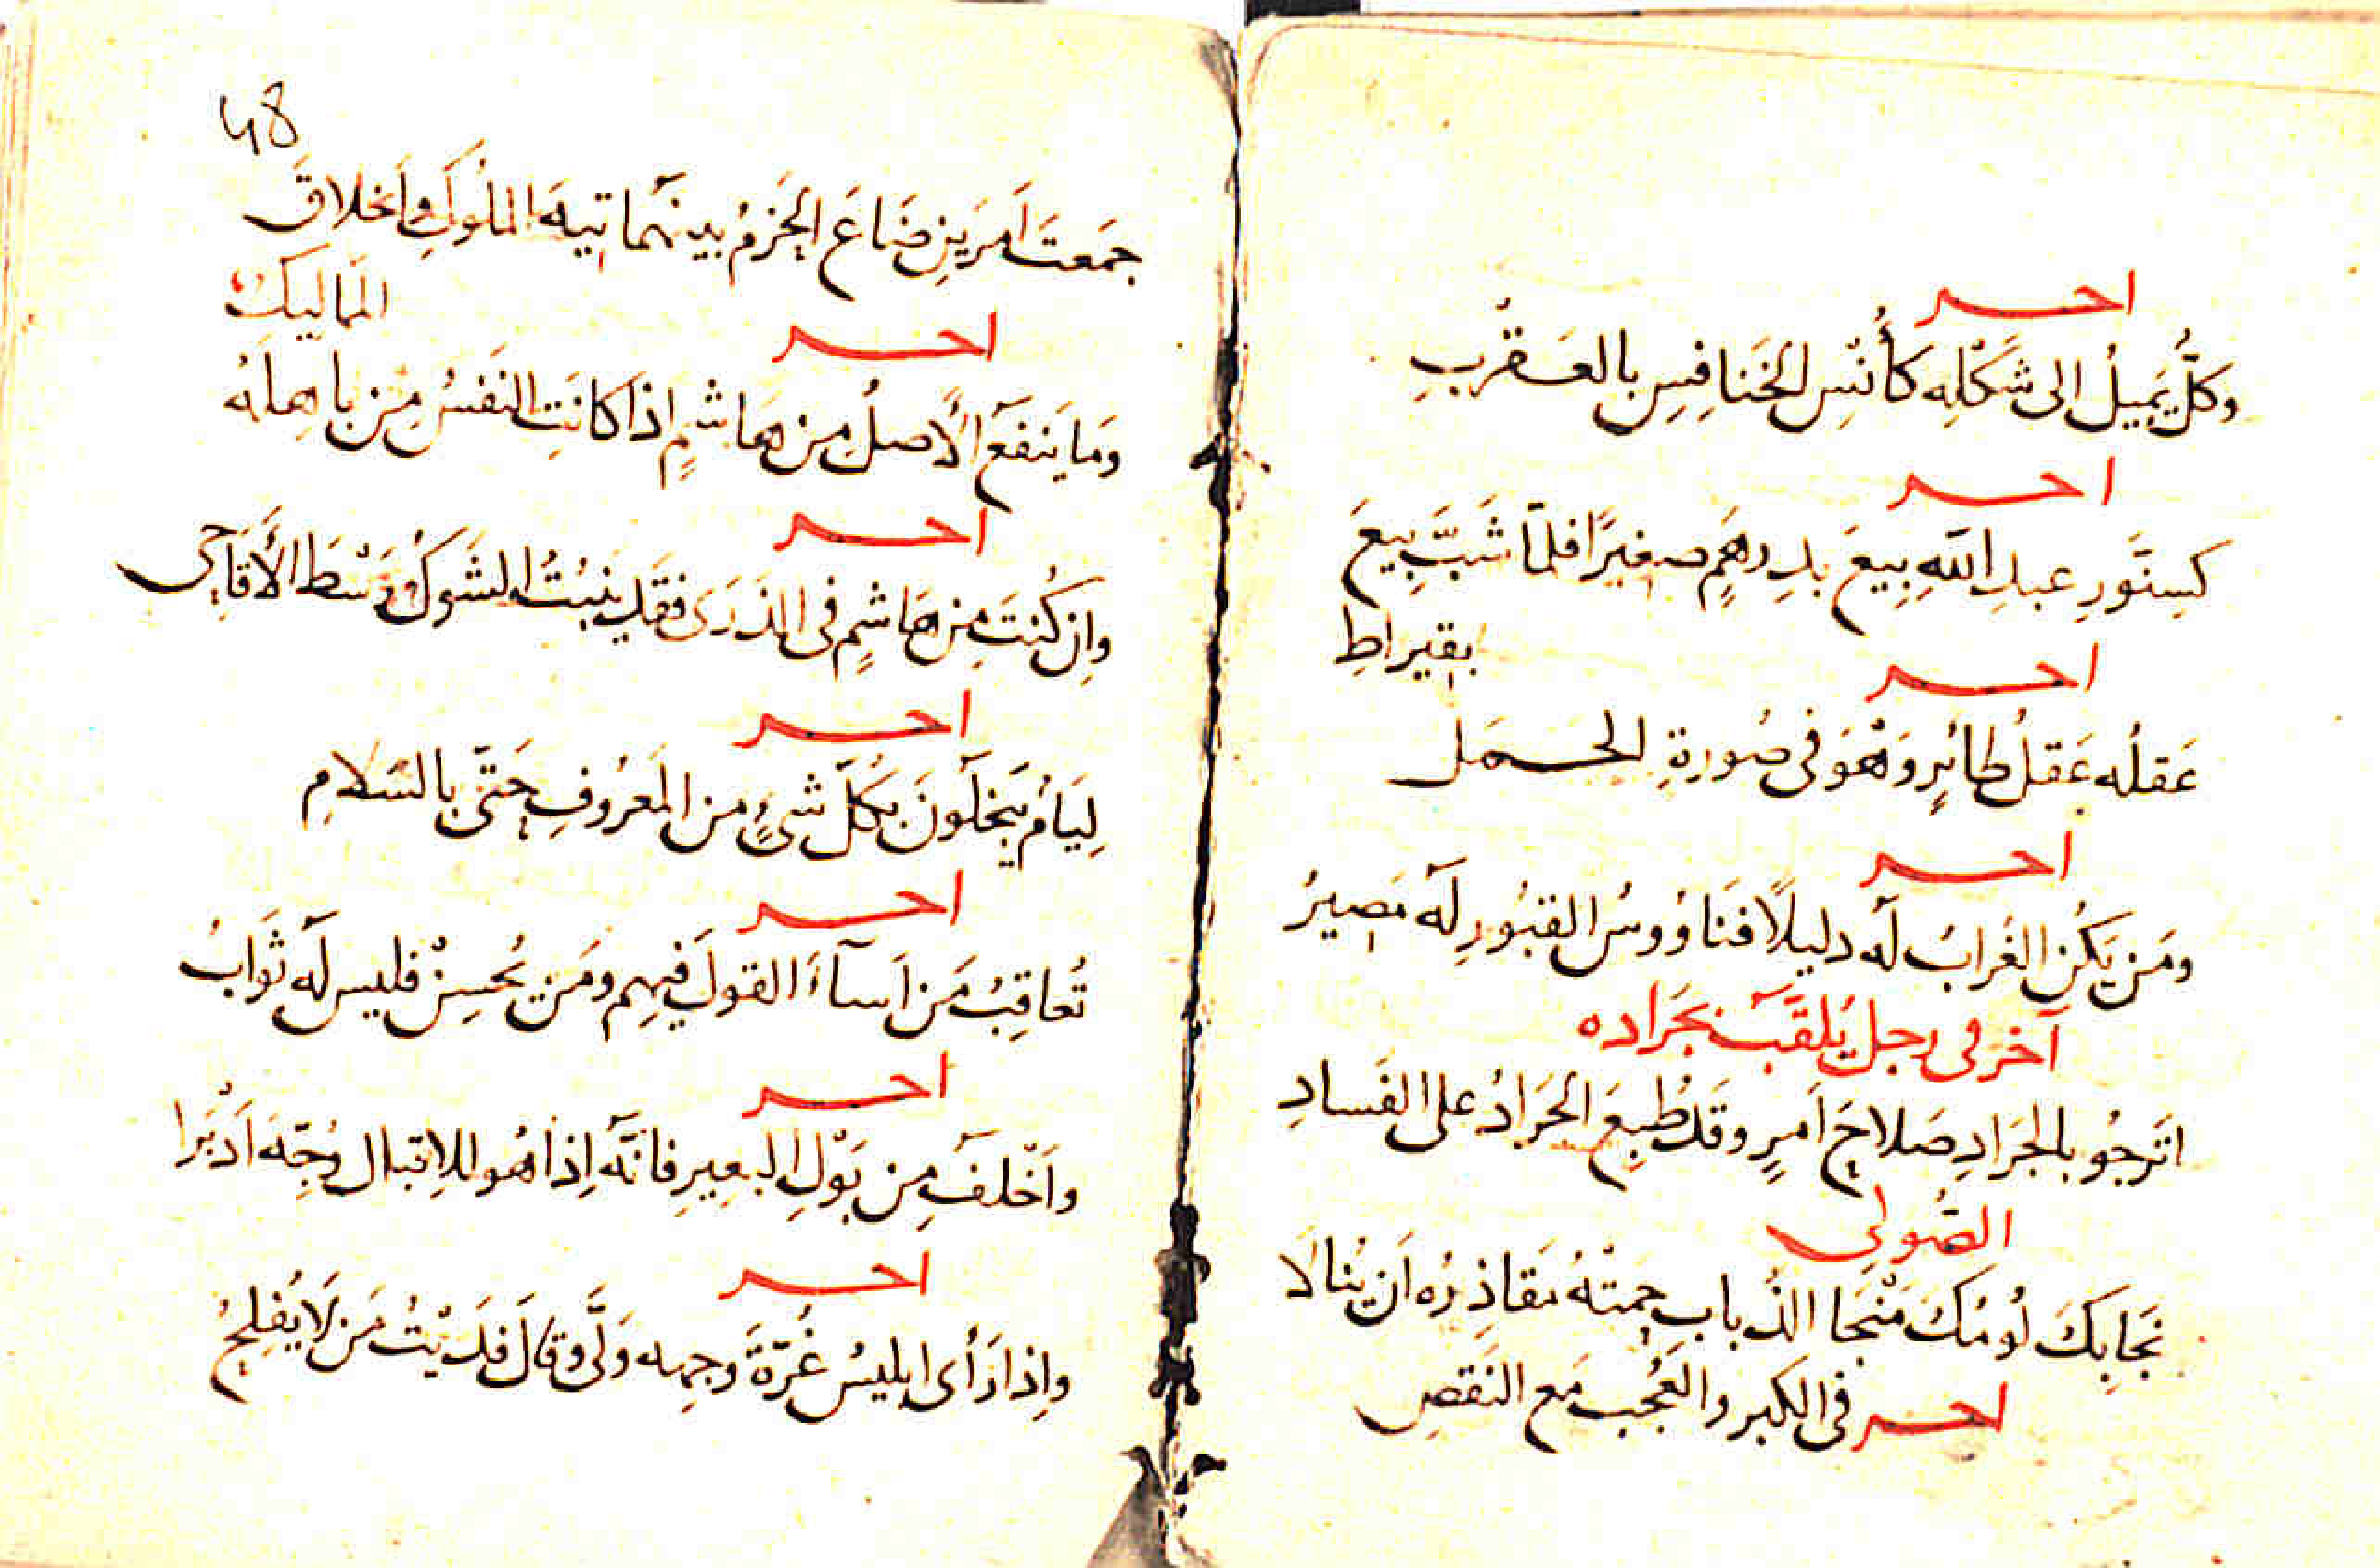 اخر
وَكُلٌّ يَمِيلُ الى شَكْلِه كَأُنْسِ الخَنافِسِ بالعَقْرَبِ
اخر
كسِنَّورِ عبدِ اللّهِ بِيعَ بدِرهَمٍ صغيرًا فلمّا شَبَّ بِيعَ
بقيراطِ
اخر
عَقلُه عَقلُ طائرٍ وَهْوَ فى صُورةِ الجمل
اخر
ومَن يَكُنِ الغُرابُ لَه دليلًا فنَاوُوسُ القبُورِ لَه مَصِيرُ
آخر فى رجل يُلقَّب بجَراده
اتَرجُو بالجَرادِ صَلاحَ اَمرٍ وقَد طُبِعَ الجَرادُ على الفَسادِ
الصُولى
نَجَا بِكَ لُومُكَ مَنْجَا الذُباب حَمَتْهُ مَقاذِرُه اَن يُنالَا
اخر فى الكبر والعُجب مَع النَقصِ
48
جمَعتَ اَمرَينِ ضَاعَ الحَزمُ بينهَما تيهَ المُلوكِ واَخلاقَ
المَماليكِ
اخر
وَما يَنفَعُ الأصلُ مِن هَاشمٍ اِذا كانَتِ النَفسُ مِن باهِلَهْ
اخر
وَاِن كُنتَ مِن هاشمٍ فى الذُرَى فقَد يَنبُتُ الشَوكُ وَسْطَ الأَقَاحى
اخر
لِيَامٌ يَبخَلُونَ بكُلّ شىءٍ من المَعرُوفِ حَتّى بالسَلامِ
اخر
تُعاقِبُ مَن اَسآءَ القولَ فيهِم ومَن يُحسِنْ فليس لَه ثَوابُ
اخر
واَخْلَفَ مِن بَوْلِ البعِيرِ فانّه اِذا هُو للاِقبال وُجِّهَ اَدْبَرا
اخر
واِذا رَأى ابليسُ غُرّةَ وَجهِه وَلَّى وقالَ فَدَيْتُ مَن لَا يُفلِحُ